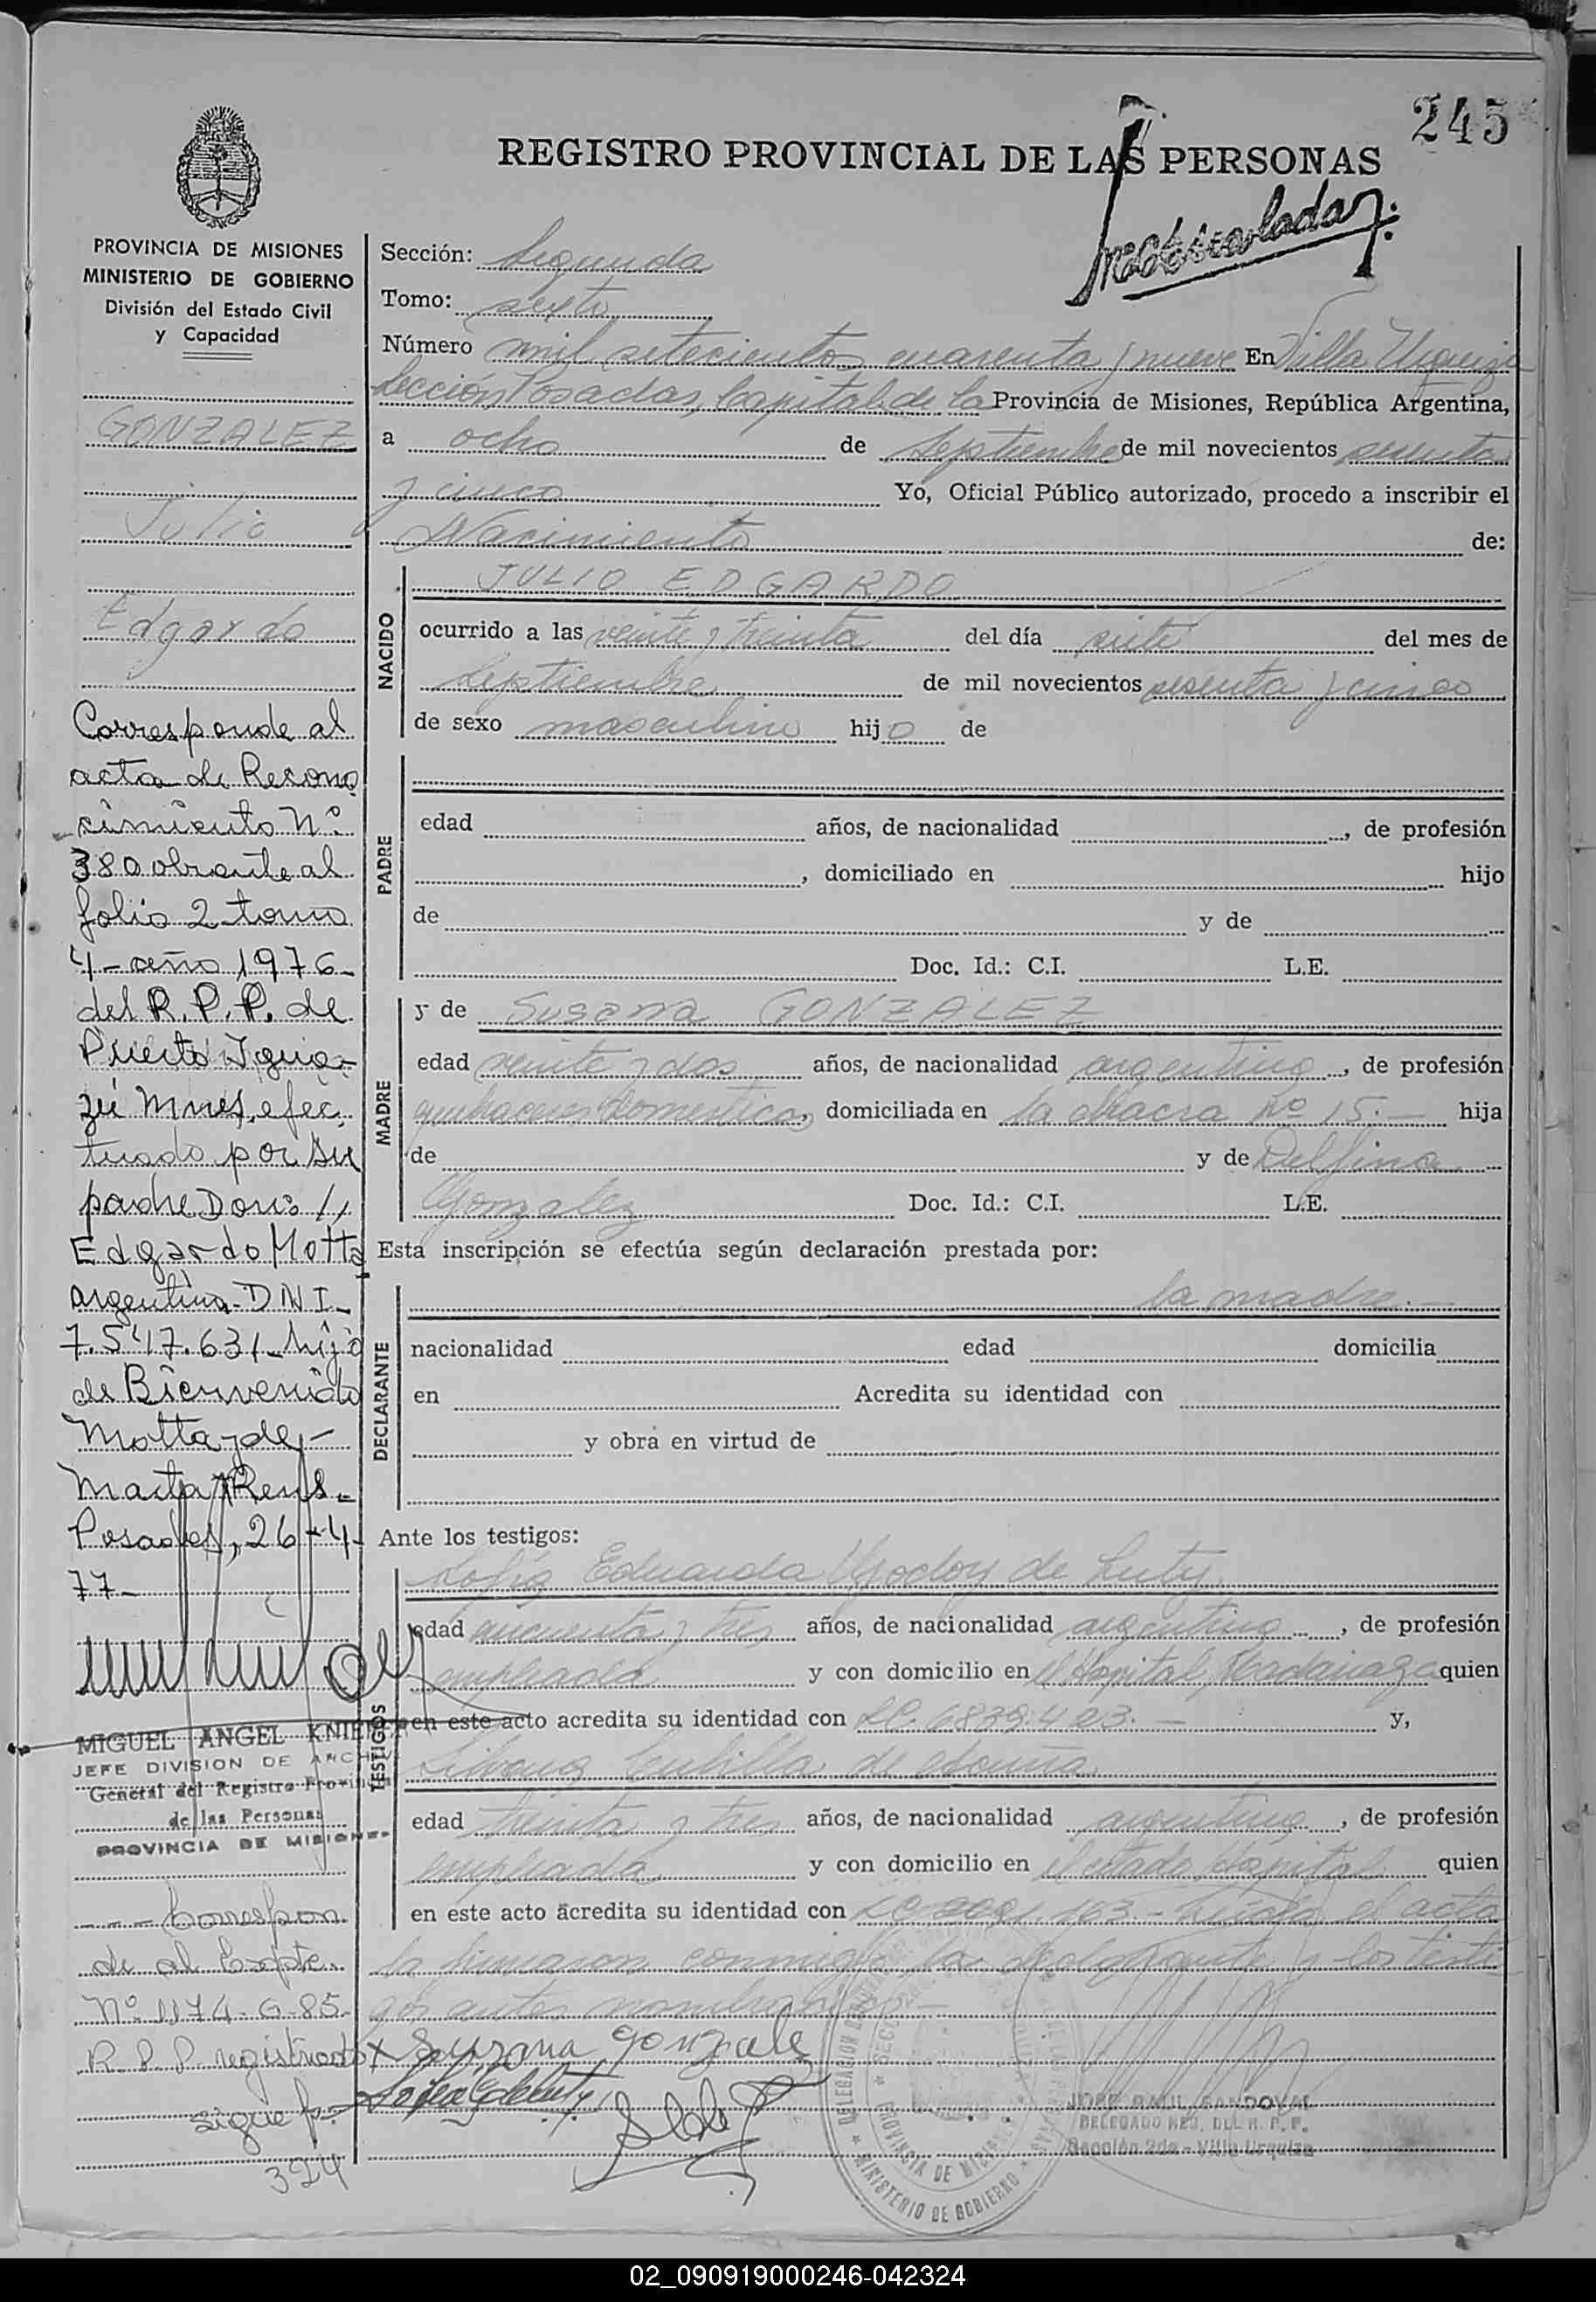 245
REGISTRO PROVINCIAL DE LAS PERSONAS
PROVINCIA DE MISIONES
MINISTERIO DE GOBIERNO
División del Estado Civil
y Capacidad
GONZALEZ
Julio
Edgardo
Corresponde al
acta de Recono
cimiento Nº
380 obrante al
folio 2 tomo
4 - año 1976
del R. P. P. de
Puerto Igua-
zú Mnes, efec
tuado por su
padre Don: //
Edgardo Motta
argentino - DNI -
7.547.631 - hijo
de Bienvenido
Motta y de -
Marta Reus -
Posadas, 26-4-
77 -
MIGUEL ANGEL
JEFE DIVISION DE ARCHIVO
General del Registro Provincial
de las Personas
PROVINCIA DE MISIONES
- - - Correspon
de al Expte.
Nº 1174-G-85-
R. P. P. registrado
sigue f.
324
Sección: Segunda
Tomo: sexto
Número mil setecientos cuarenta y nueve En Villa Urquiza
Sección Posadas, Capital de la Provincia de Misiones, República Argentina,
a ocho de Septiembre de mil novecientos sesenta
y cinco Yo, Oficial Público autorizado, procedo a inscribir el
Nacimiento de:
NACIDO
JULIO EDGARDO
ocurrido a las veinte y treinta del día siete del mes de
Septiembre de mil novecientos sesenta y cinco
de sexo masculino hijo de
PADRE
edad años, de nacionalidad , de profesión
, domiciliado en hijo
de y de
Doc. Id.: C.I. L.E.
MADRE
y de Susana GONZALEZ
edad veinte y dos años, de nacionalidad argentina, de profesión
quehaceres domesticos, domiciliada en la chacra Nº 15.- hija
de y de Delfina
Gonzalez Doc. Id.: C.I. L.E.
Esta inscripción se efectúa según declaración prestada por:
DECLARANTE
la madre.-
nacionalidad edad domicilia
en Acredita su identidad con
y obra en virtud de
Ante los testigos:
TESTIGOS
Sofia Eduarda Godoy de Luty
edad cincuenta y tres años, de nacionalidad argentina, de profesión
empleada y con domicilio en el Hospital Madariaga quien
en este acto acredita su identidad con LC. 6839.423.- y,
Silvana de Acuña
edad treinta y tres años, de nacionalidad argentina, de profesión
empleada y con domicilio en el citado Hospital quien
en este acto acredita su identidad con LC 163.- Leída el acta
la firmaron conmigo, la declarante y los testi
gos antes nombrados.-
x Suzana gonzale
JOSE RAUL SANDOVAL
DELEGADO DEL R. P. P.
Sección 2da - Villa Urquiza
PROVINCIA DE MISIONES
MINISTERIO DE GOBIERNO
02_090919000246-042324